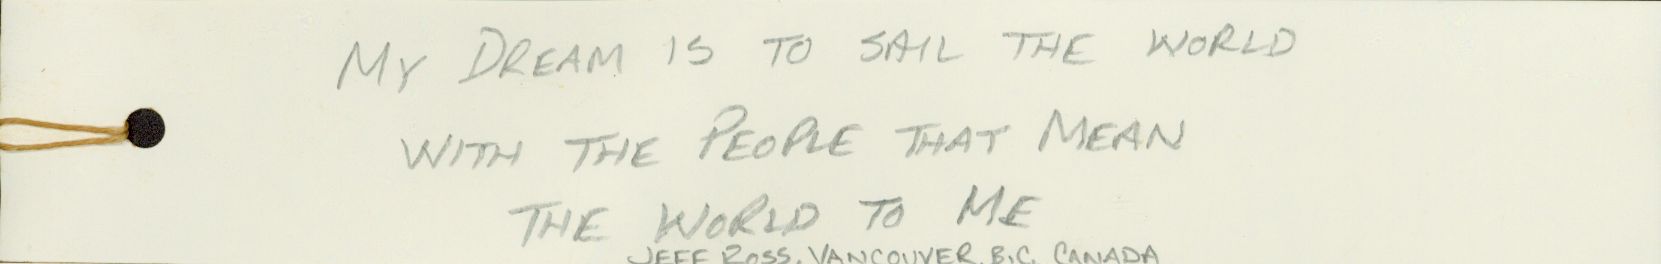 MY DREAM IS TO SAIL THE WORLD
WITH THE PEOPLE THAT MEAN
THE WORLD TO ME
JEFF ROSS, VANCOUVER, B.C. CANADA